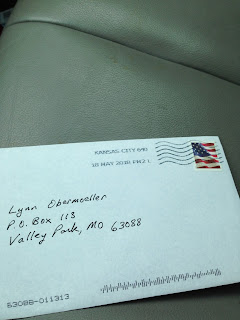 KANSAS CITY 640
18 MAY 2018 PM 2 L
Lynn Obermoeller
P.O. Box 113
Valley Park, MO 63088
63088-011313